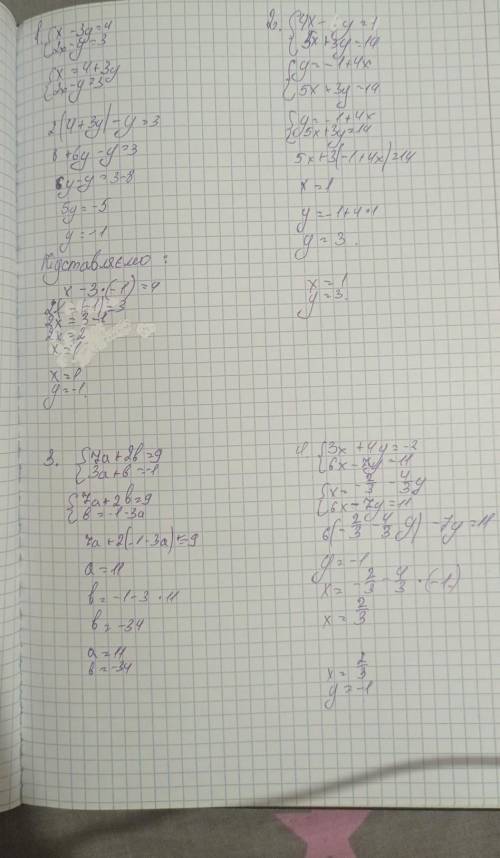 1. { x - 3y = 4
2x - y = 3
{ x = 4 + 3y
2x - y = 3
2(4 + 3y) - y = 3
8 + 6y - y = 3
6y - y = 3 - 8
5y = -5
y = -1
Підставляємо :
x - 3 · (-1) = 4
2x - (-1) = 3
2x = 3 - 1
2x = 2
x = 1
x = 1
y = -1.
2. { 4x - y = 1
5x + 3y = 14
{ y = -1 + 4x
5x + 3y = 14
{ y = -1 + 4x
5x + 3y = 14
5x + 3(-1 + 4x) = 14
x = 1
y = -1 + 4 · 1
y = 3.
x = 1
y = 3.
3. { 7a + 2b = 9
3a + b = -1
{ 7a + 2b = 9
b = -1 - 3a
7a + 2(-1 - 3a) = 9
a = 11
b = -1 - 3 · 11
b = -34
a = 11
b = -34
4 { 3x + 4y = -2
6x - 7y = 11
{ x = -2/3 - 4/3y
6x - 7y = 11
6(-2/3 - 4/3y) - 7y = 11
y = -1
x = -2/3 - 4/3 · (-1)
x = 2/3
x = 2/3
y = -1